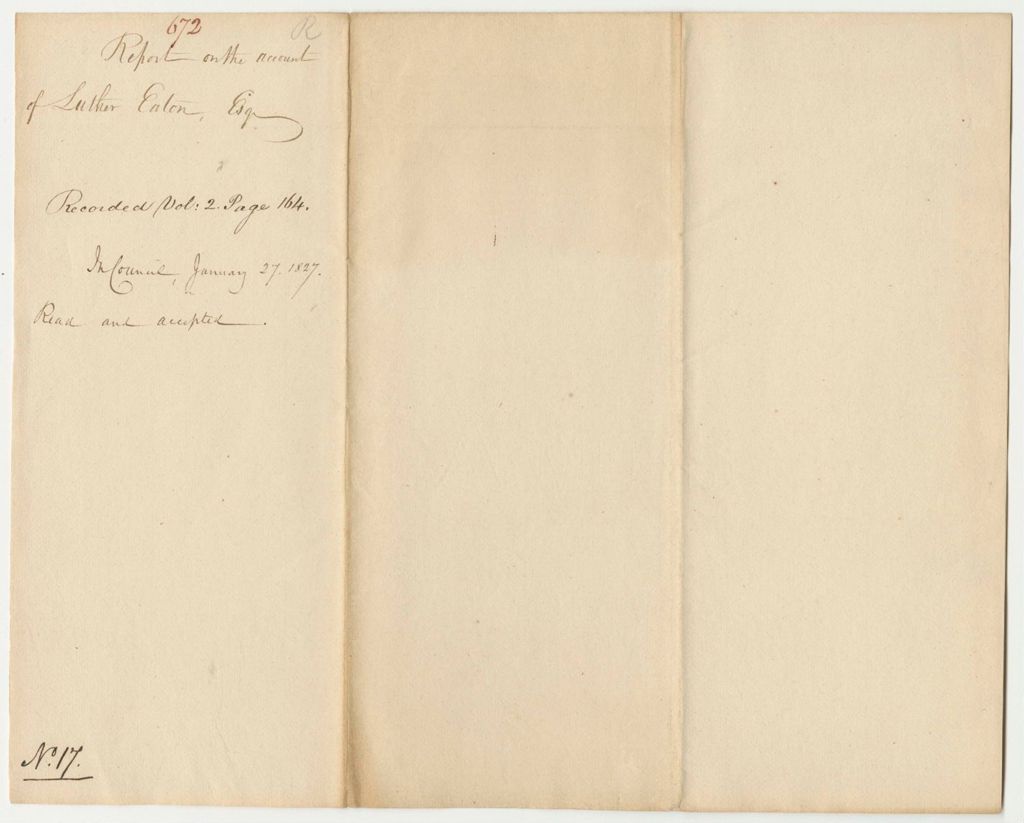 672 R
Report on the account
of Luther Eaton, Esq
Recorded Vol: 2. Page 164.
In Council, January 27. 1827.
Read and accepted.
No. 17.